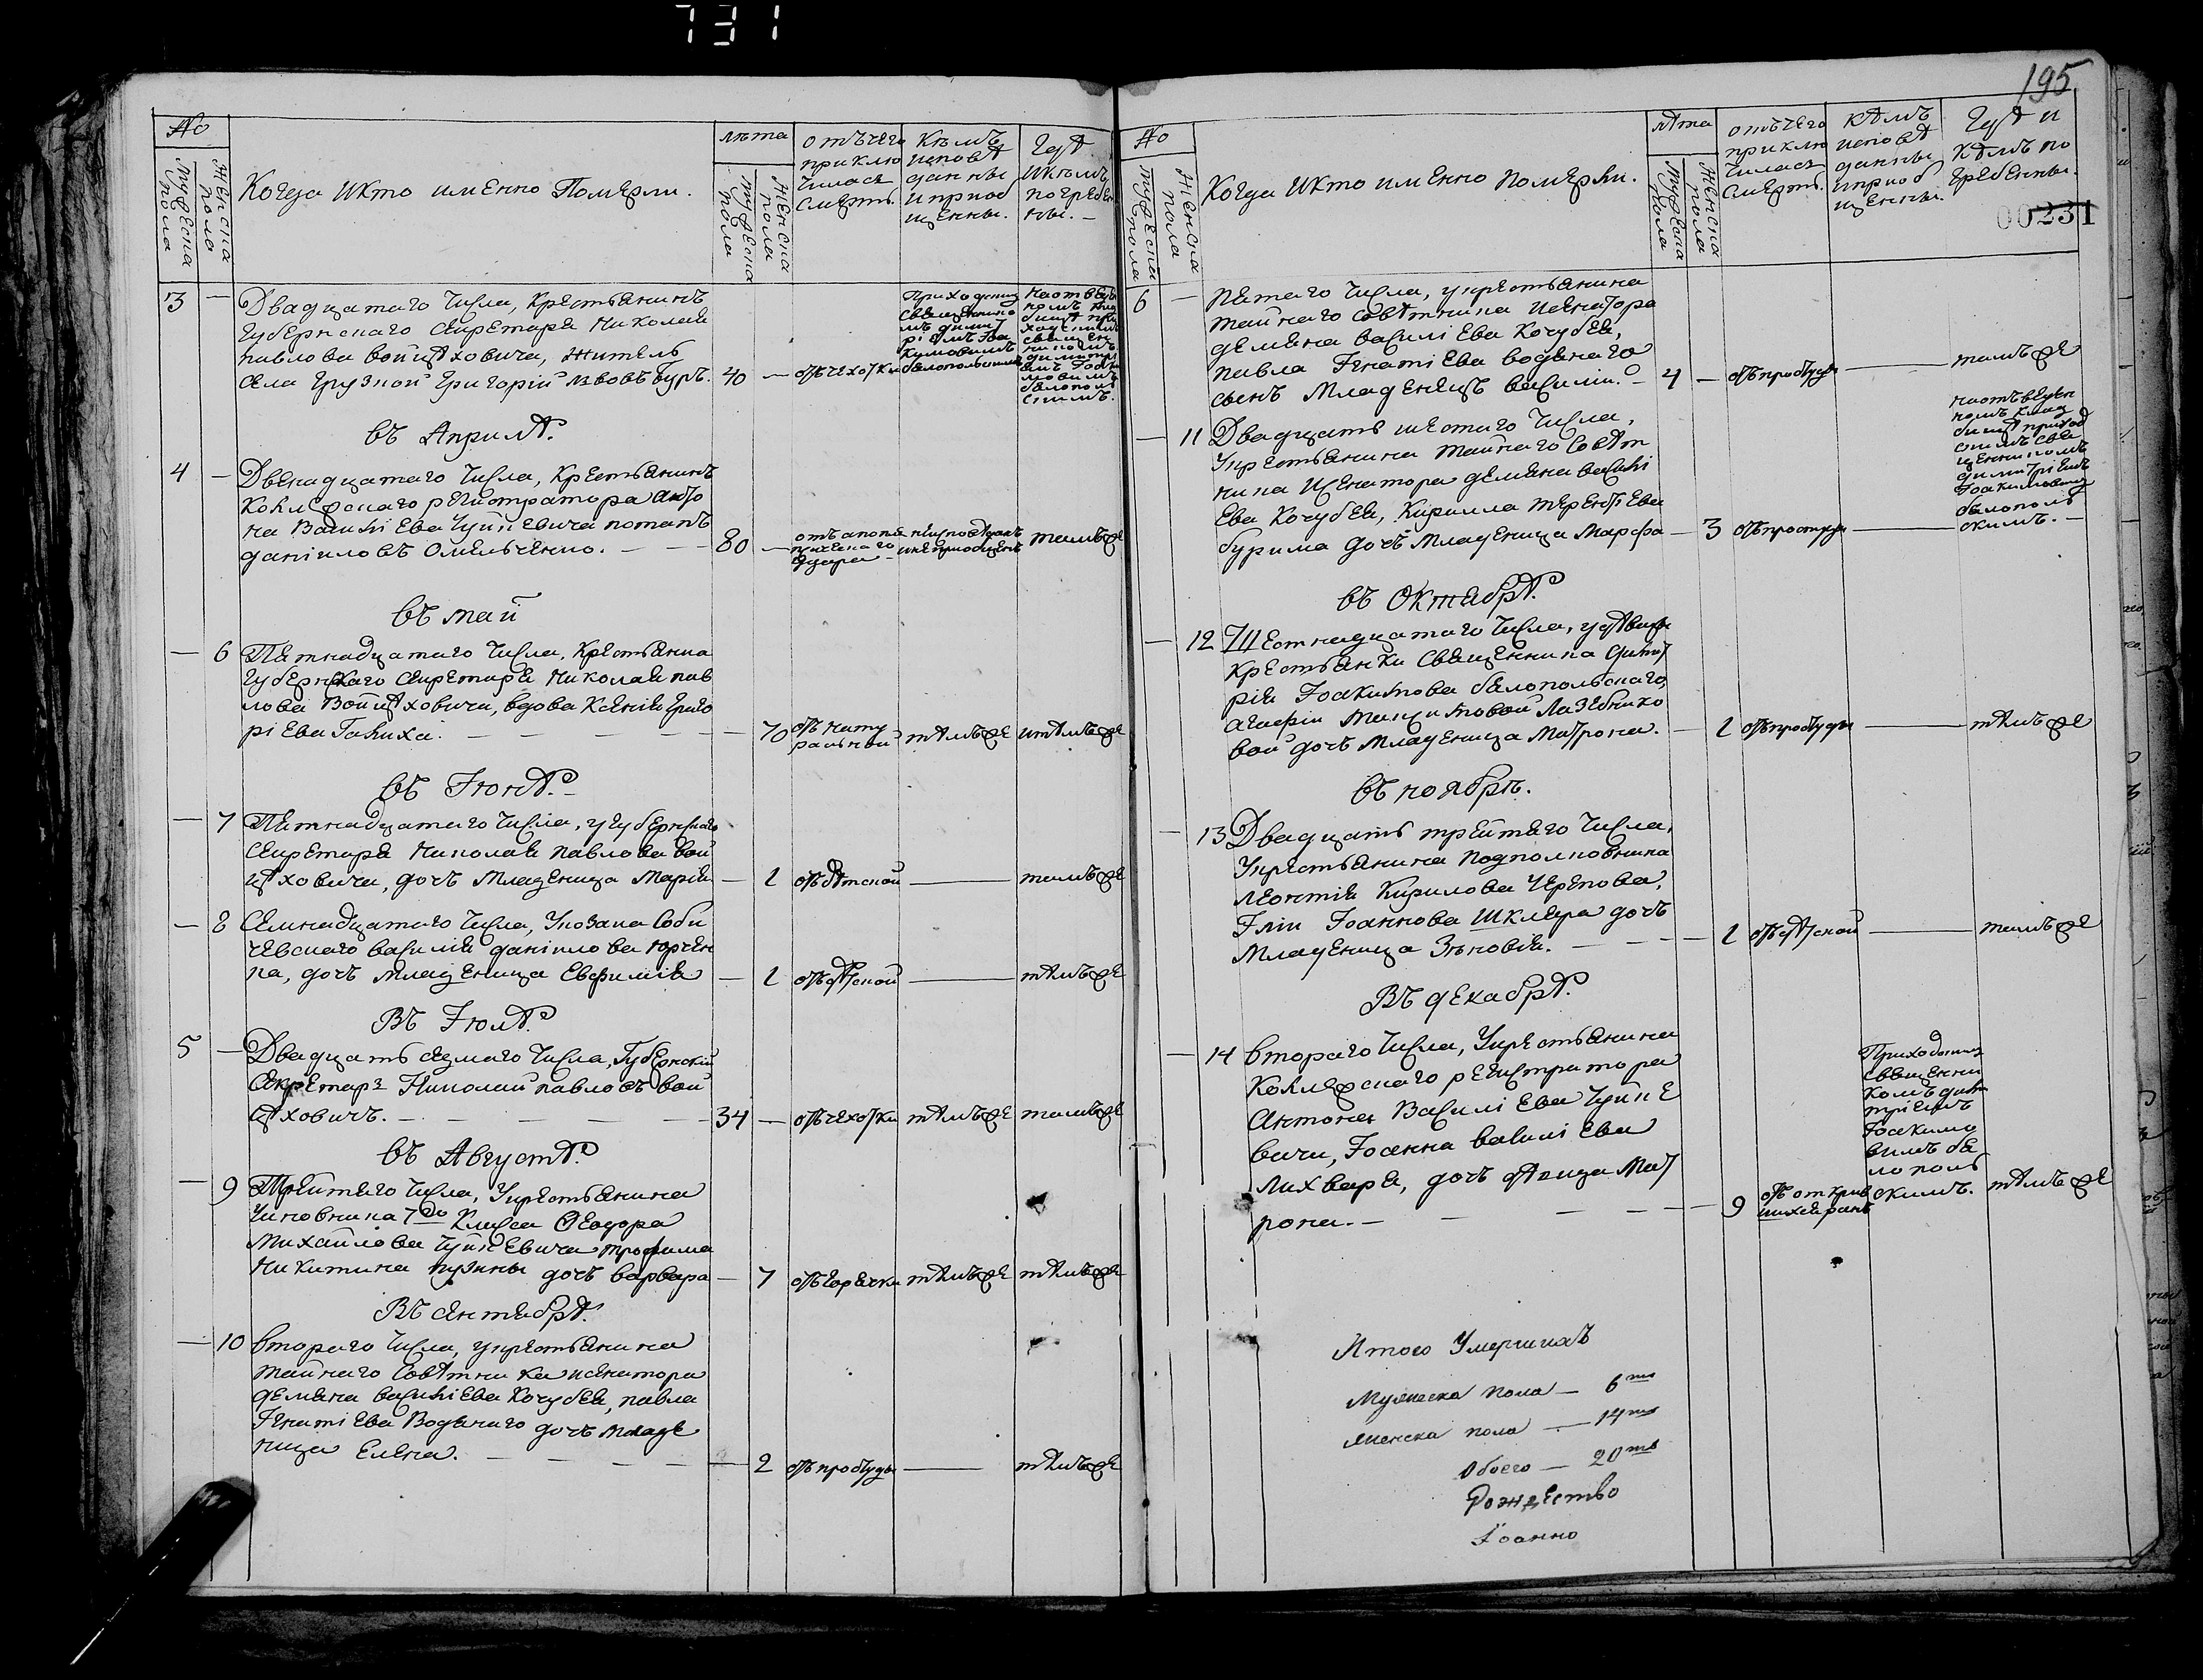 731
195
00231
№
Мужеска пола
Женска пола
Когда икто имѣнно Померли.
лѣта
Мужеска пола
Женска пола
отъ чего
приклю
чилась
смерть.
Кѣмъ
исповѣ
даны
и приоб
щенны.
Гдѣ
и кѣмъ
погребен
ны.
3
Двадцатаго Числа, Крестьянинъ
Губернскаго Секретаря Николая
павлова войцѣховича, житель
села Грузной Григорій Львовъ Буръ.
40
отъ чехотки
Приходским
священнико
мъ димит
ріемъ Іоа
кимовимъ
белопольским
на отведен
номъ кла
бищѣ при
ходскимъ
священ
никомъ
димитрі
емъ Іоаки
мовимъ
белополь
скимъ.
въ Априлѣ.
4
Двенадцатаго Числа, Крестьянинъ
Колежскаго регистратора Анто
на Василіева Чуйкевича потапъ
даніиловъ Омельченко.
80
отъ апопле
ксическаго
удара
неисповѣданъ
и неприобщенъ
тамъже
въ май
6
Пятнадцатаго Числа, Крестьянка
Губернскаго Секретаря Николая пав
лова Войцѣховича, вдова Ксенія Григо
ріева Галиха.
70
отъ нату
ральной
тѣмъже
итѣмъже
въ Іюнѣ.
7
Пятнадцатаго Числа, у губернскаго
секретаря Николая павлова вой
цѣховича, дочъ младеница Марія
1
отъ дѣтской
тамъже
8
Семнадцатаго Числа, У козака Соби
чевскаго василія даніилова юрчен
ка, дочъ младеница Евфимія
1
отъ дѣтской
тѣмъже
Въ Іюлѣ.
5
Двадцать седмаго Числа, Губернскій
Секретарь Николай павловъ вой
цѣховичъ.
34
отъ чехотки
тѣмъже
тамъже
въ Августѣ.
9
Трейтяго Числа, У крестьянина
Чиновника 7го Класса Ѳеодора
Михайлова Чуйкевича трофима
Никитина дочъ варвара
7
отъ горячки
тѣмъже
тѣмъже
Въ сентябрѣ.
10
втораго Числа, у крестьянина
тайнаго Совѣтника и сенатора
демяна василіева Кочубея, павла
Игнатіева Водянаго дочъ младе
ница Елена.
2
отъ простуды
тѣмъже
№
Мужеска пола
Женска пола
Когда икто имѣнно померли.
лѣта
Мужеска пола
Женска пола
отъ чего
приклю
чилась
смерть.
кѣмъ
исповѣ
данны
и приоб
щенны.
Гдѣ и
кѣмъ по
гребенны.
6
пятаго Числа, у крестьянина
тайнаго совѣтника и сенатора
демяна василіева Кочубея,
павла Игнатіева водянаго
сынъ младенецъ василій.
4
отъ простуды
тамъже
11
Двадцать шестаго Числа,
У крестьянина тайнаго Совѣт
ника и Сенатора демяна васили
ева Кочубея, Кирилла терентіева
бурима дочъ младеница Марфа
3
отъ простуды
на отъведен
номъ клад
бищѣ приход
скимъ свя
щенникомъ
димитріемъ
Іоакимовим
белополь
скимъ.
въ Октябрѣ.
12
Шестнадцатаго Числа, у вдовы
крестьянки Священника димит
рія Іоакимова белопольскаго,
агафіи Лазебнико
вой дочъ младеница Матрона.
1
отъ простуды
тѣмъже
въ ноябрѣ.
13
Двадцать трейтяго Числа,
У крестьянина подполковника
леонтія Кирилова Черепова,
Іліи Іоаннова Шкляра дочъ
младеница Зѣновія.
1
отъ дѣтской
тамъже
Въ декабрѣ.
14
втораго Числа, У крестьянина
Колежскаго регистратора
Антона Василіева Чуйке
вича, Іоанна василіева
Лихваря, дочъ дѣвица Мат
рона.
9
отъ открив
шихся ранъ
Приходским
священни
комъ дими
тріемъ
Іоакимо
вимъ бе
лополь
скимъ.
тѣмъже
Итого Умершихъ
Мужеска пола — 6ть
Женска пола — 14ть
Обоего — 20ть
Рождество
Іоанно